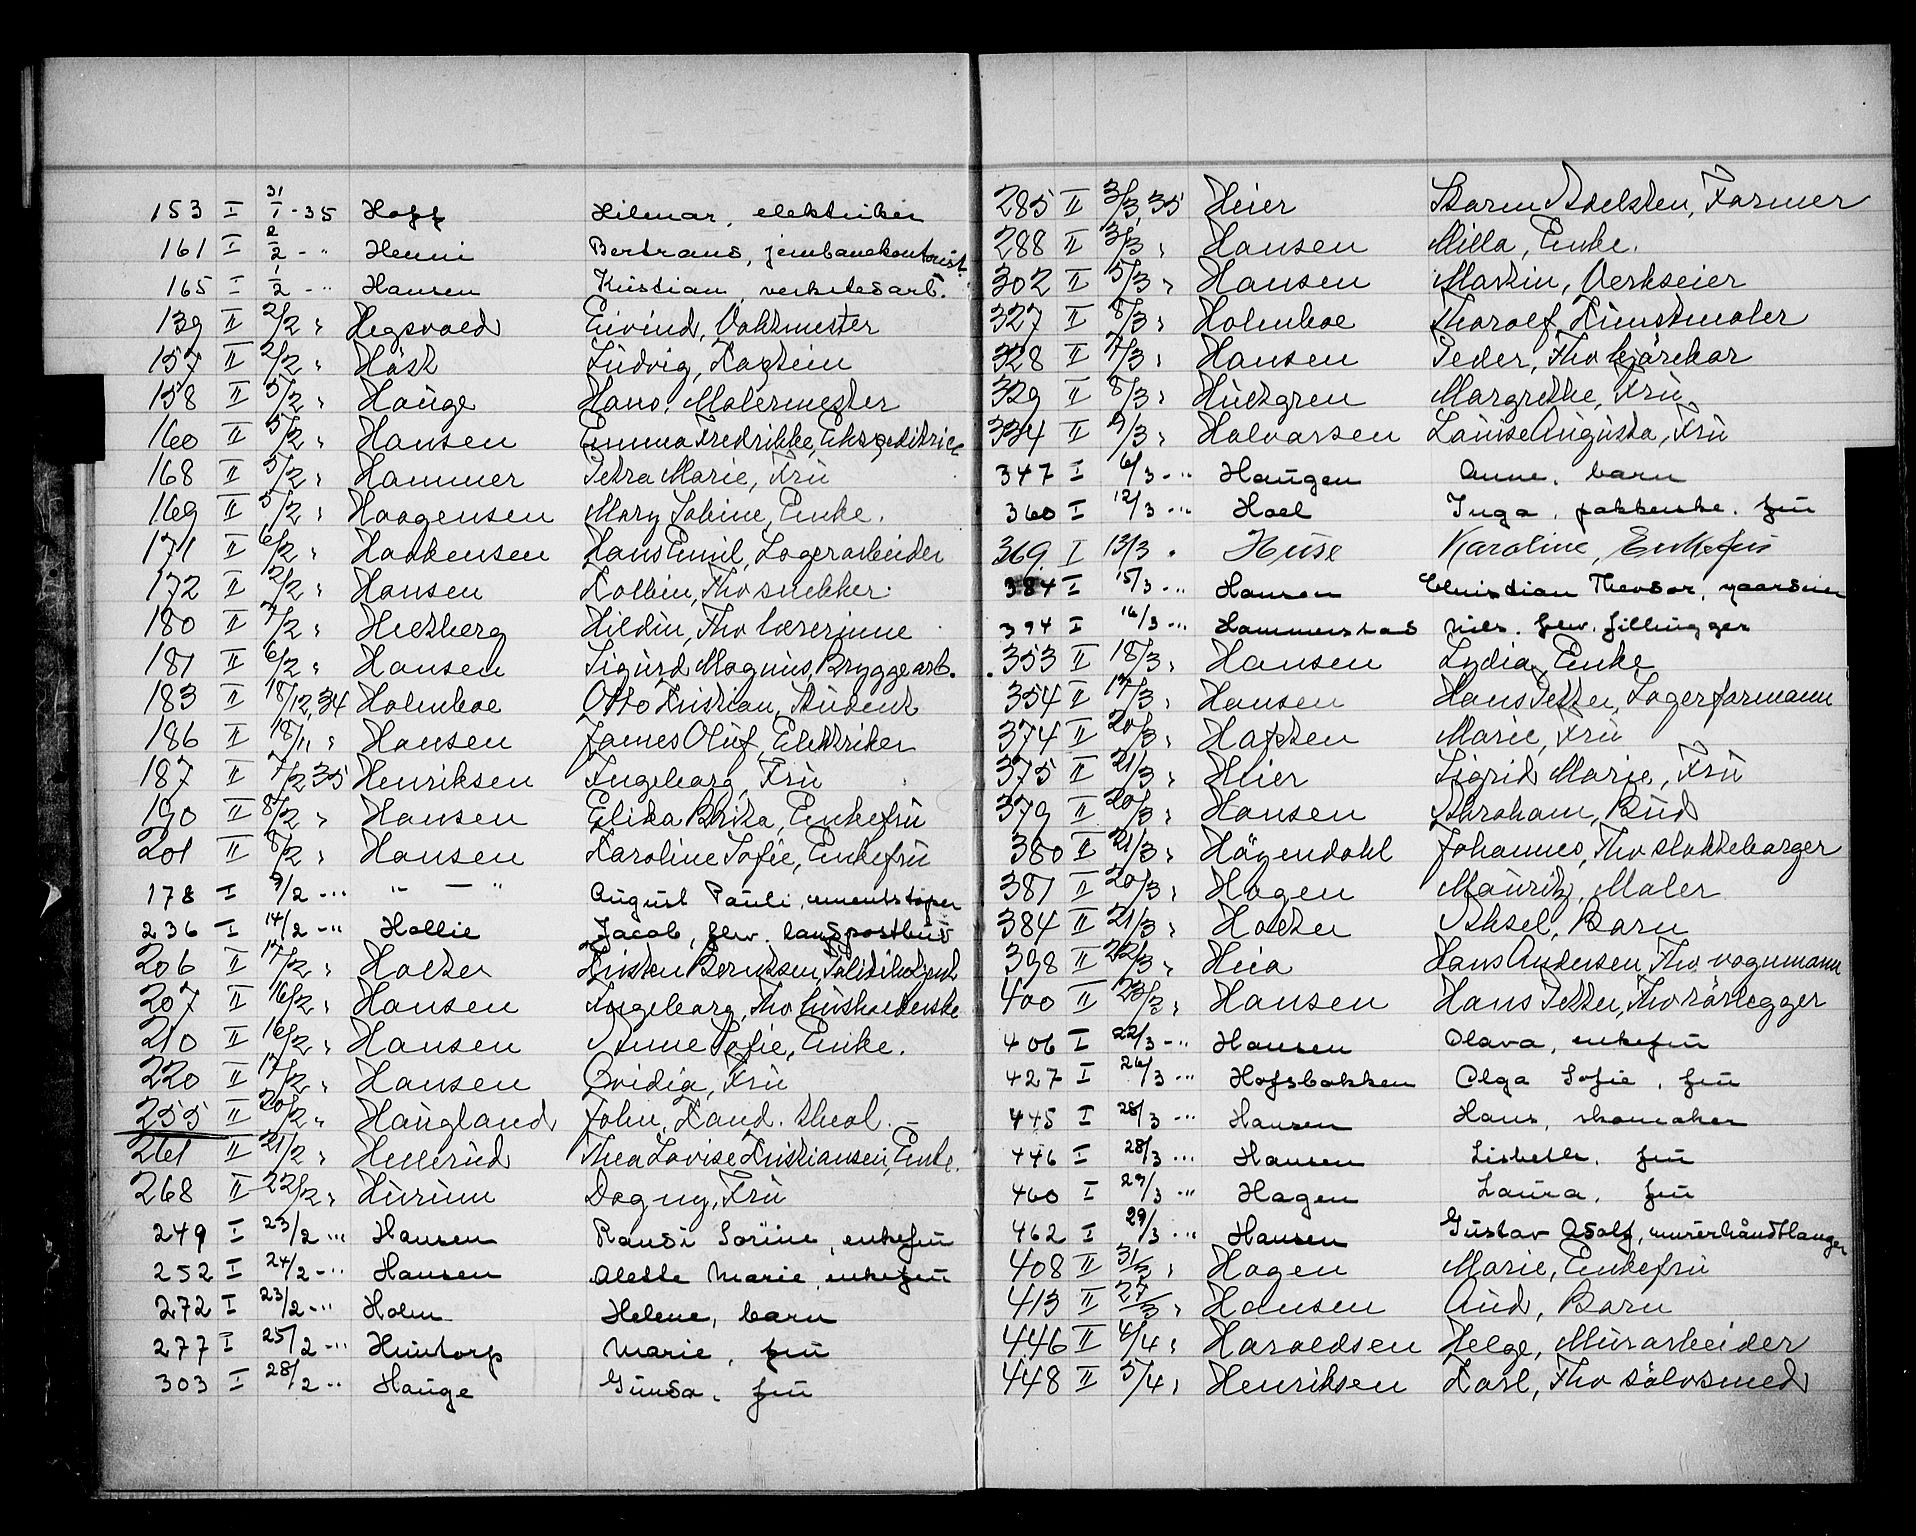 153 I 31/1-35 Hoff Hilmar, elektriker
161 I 2/2 -" Henni Bertrand, jernbanekontorist.
165 I 1/2 -" Hansen Kristian, verkstedsarb.
139 II 2/2 " Hegsvold Eivind, Vaktmester
157 II 2/2 " Höst Ludvig, Kaptein
158 II 5/2 " Hauge Hans, Malermester
160 II 5/2 " Hansen Emma Fredrikke, Ekspeditrice
168 II 5/2 " Hammer Petra Marie, Fru
169 II 5/2 " Haagensen Mary Sabine, Enke.
171 II 6/2 " Haakensen Hans Emil, Lagerarbeider
172 II 2/2 " Hansen Kolbin, Fhv snekker.
180 II 7/2 " Hertzberg Hildur, Fhv lærerinne
181 II 6/2 " Hansen Sigurd Magnus, Bryggearb.
183 II 18/12,34 Holmboe Otto Kristian, Student
186 II 18/11 " Hansen James Oluf, Elektriker
187 II 7/2 35 Henriksen Ingeborg, Fru
190 II 8/2 " Hansen Elika Brita, Enkefru
201 II 8/2 " Hansen Karoline Sofie, Enkefru
178 I 9/2 -" " — " August Pauli, sementstøper
236 I 14/2 -" Hollie Jacob, fhv. landpostbud
206 II 17/2 " Holter Kristen Berntsen, Politibetjent
207 II 16/2 " Hansen Ingeborg, Fhv husholderske
210 II 16/2 " Hansen Anne Sofie, Enke.
220 II 17/2 " Hansen Ovidia, Fru
255 II 20/2 " Haugland John, Kand. theol. –
261 II 21/2 " Hellerud Thea Lovise Kristiansen, Enke.
268 II 22/2 " Hurum Dagny, Fru
249 I 23/2 -" Hansen Randi Sørine, enkefru
252 I 24/2 -" Hansen Alette Marie, enkefru
272 I 23/2 -" Holm Helene, barn
277 I 25/2 -" Huntorp Marie, fru
303 I 28/2 -" Hauge Gunda, fru
285 II 3/3, 35 Heier Adelsten, Farmer
288 II 3/3 " Hansen Milla, Enke.
302 II 5/3 " Hansen Martin, Verkseier
327 II 8/3 " Holmboe Thorolf, Kunstmaler
328 II 7/3 " Hansen Peder, Fhv kjörekar
329 II 8/3 " Hultgren Margrethe, Fru
334 II 9/3 " Halvorsen Louise Augusta, Fru
347 I 6/3 -" Haugen Anne, barn
360 I 12/3 -" Hoel Inga, pakkerske, fru
369. I 13/3 " Huse Karoline, Enkefru
384 I 15/3 -" Hansen Christian Theodor, gaardeier
394 I 16/3 -" Hammerstad Nils, fhv. fillhugger
353 II 18/3 " Hansen Lydia, Enke
354 II 17/3 " Hansen Hans Petter, Lagerformann
374 II 20/3 " Hafsten Marie, Fru
375 II 21/3 " Heier Sigrid Marie, Fru
379 II 20/3 " Hansen Abraham, Bud
380 II 21/3 " Högendahl Johannes, Fhv slottsborger
381 II 20/3 " Hagen Mauritz, Maler
384 II 21/3 " Holter Aksel, Barn
398 II 22/3 " Heia Hans Andersen, Fhv vognmann
400 II 23/3 " Hansen Hans Petter, Fhv rörlegger
406 I 22/3 -" Hansen Olava, enkefru
427 I 26/3 -" Hofsbakken Olga Sofie, fru
445 I 28/3 -" Hansen Hans, skomaker
446 I 28/3 -" Hansen Lisbeth, fru
460 I 29/3 -" Hagen Laura, fru
462 I 29/3 -" Hansen Gustav Adolf, murerhåndtlanger
408 II 31/3 " Hagen Marie, Enkefru
413 II 27/3 " Hansen Aud, Barn
446 II 4/4 " Haroldsen Helge, Murarbeider
448 II 5/4 " Henriksen Karl, Fhv sölvsmed